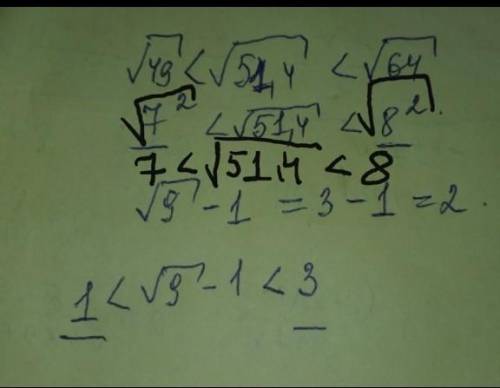 √49 < √51,4 < √64
√7² < √51,4 < √8².
7 < √51,4 < 8
√9 - 1 = 3 - 1 = 2.
1 < √9 - 1 < 3